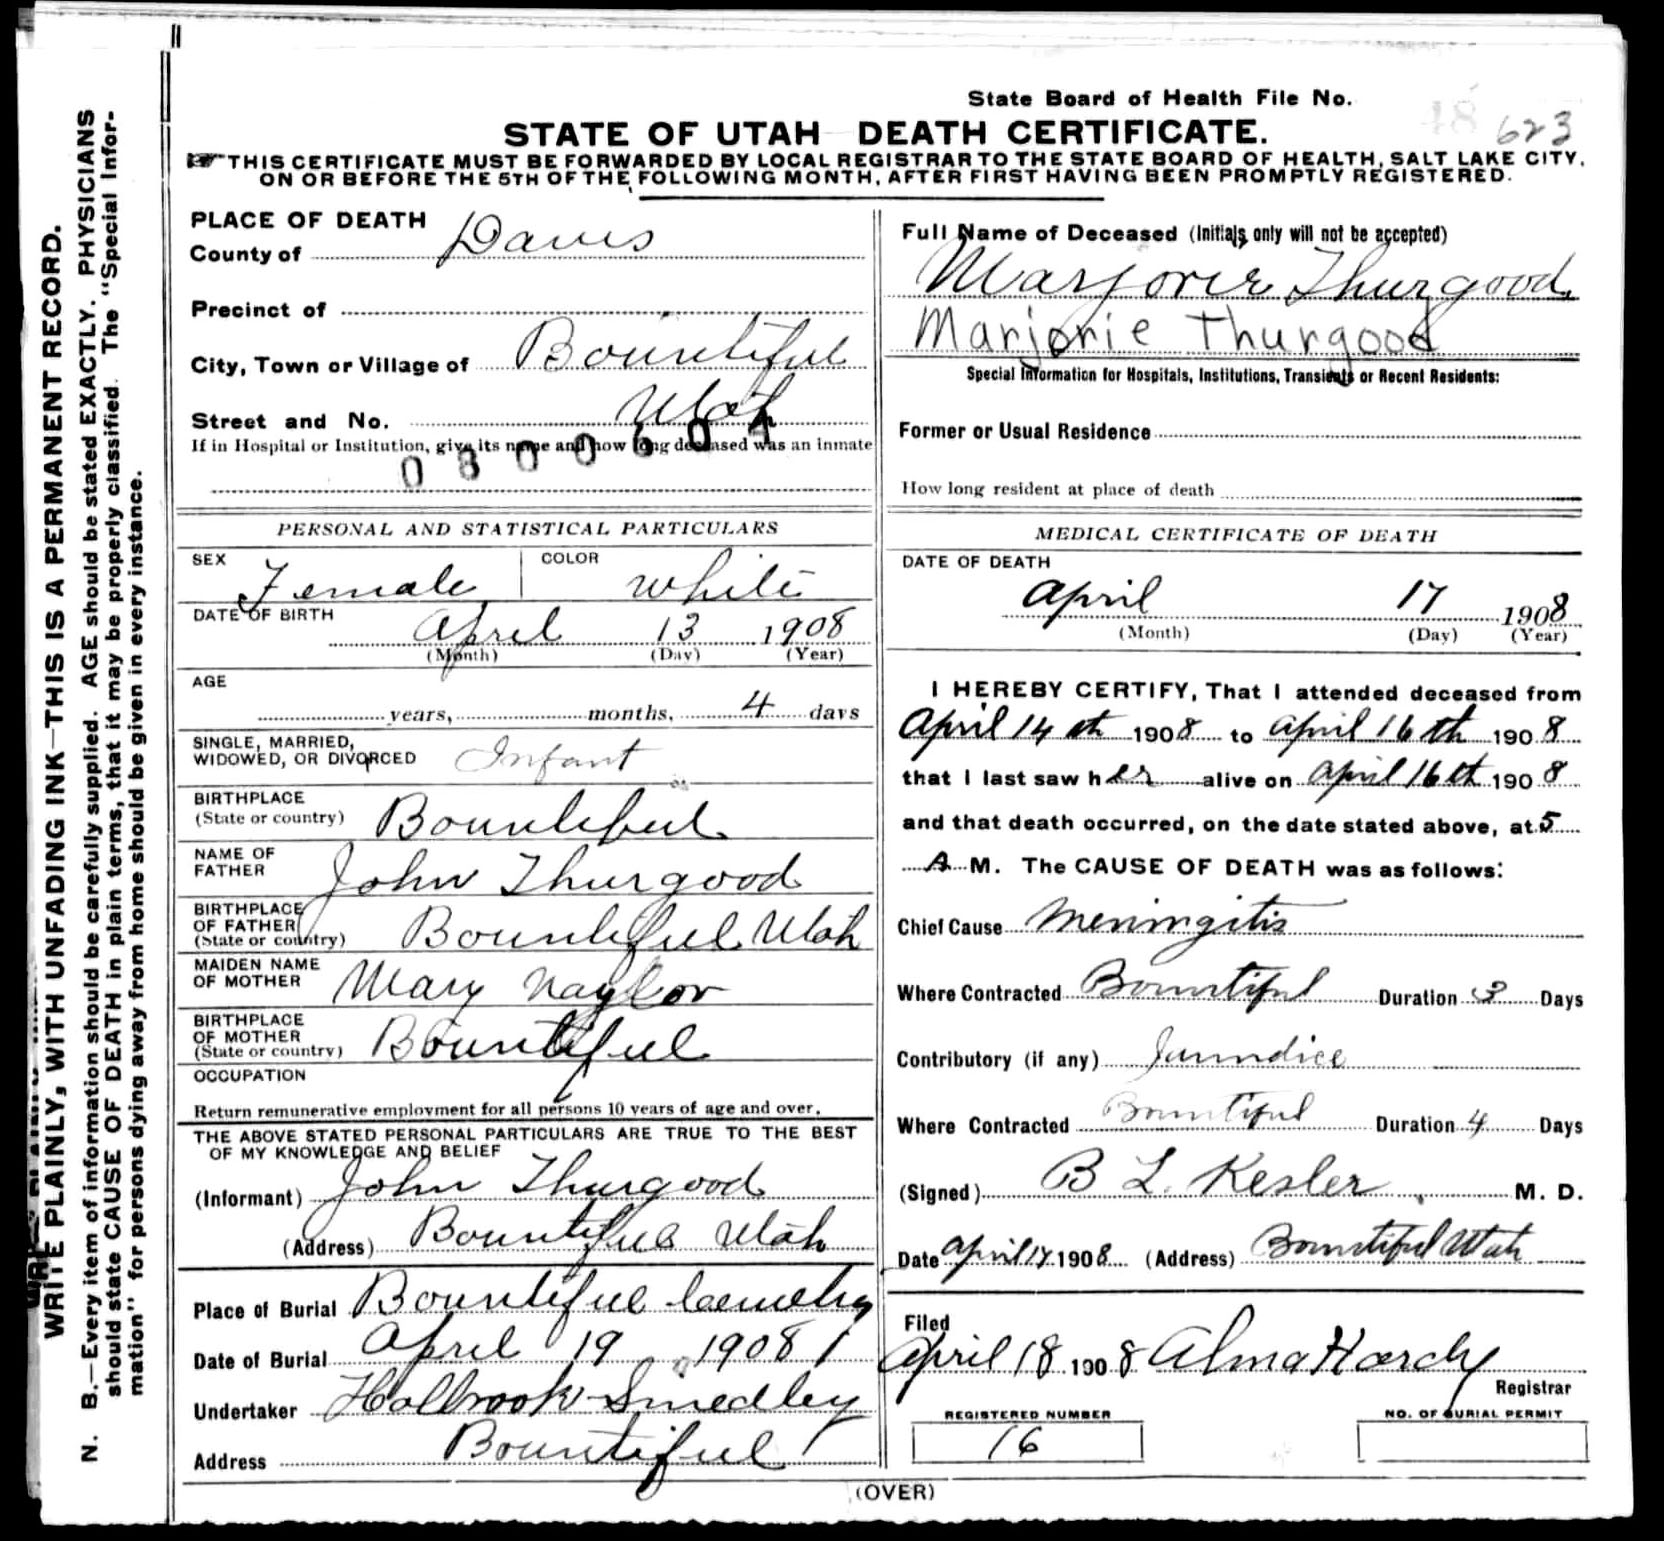 State Board of Health File No. 623
STATE OF UTAH DEATH CERTIFICATE.
THIS CERTIFICATE MUST BE FORWARDED BY LOCAL REGISTRAR TO THE STATE BOARD OF HEALTH, SALT LAKE CITY,
ON OR BEFORE THE 5TH OF THE FOLLOWING MONTH, AFTER FIRST HAVING BEEN PROMPTLY REGISTERED.
WRITE PLAINLY, WITH UNFADING INK—THIS IS A PERMANENT RECORD.
N. B.—Every item of information should be carefully supplied. AGE should be stated EXACTLY. PHYSICIANS
should state CAUSE OF DEATH in plain terms, that it may be properly classified. The "Special Infor-
mation" for persons dying away from home should be given in every instance.
PLACE OF DEATH
County of Davis
Precinct of
City, Town or Village of Bountiful
Utah
Street and No.
If in Hospital or Institution, give its name and how long deceased was an inmate
0800604
PERSONAL AND STATISTICAL PARTICULARS
SEX Female COLOR White
DATE OF BIRTH April 13 1908
(Month) (Day) (Year)
AGE
years, months, 4 days
SINGLE, MARRIED,
WIDOWED, OR DIVORCED Infant
BIRTHPLACE
(State or country) Bountiful
NAME OF
FATHER John Thurgood
BIRTHPLACE
OF FATHER
(State or country) Bountiful Utah
MAIDEN NAME
OF MOTHER Mary Naylor
BIRTHPLACE
OF MOTHER
(State or country) Bountiful
OCCUPATION
Return remunerative employment for all persons 10 years of age and over.
THE ABOVE STATED PERSONAL PARTICULARS ARE TRUE TO THE BEST
OF MY KNOWLEDGE AND BELIEF
(Informant) John Thurgood
(Address) Bountiful Utah
Place of Burial Bountiful Cemetry
Date of Burial April 19 1908
Undertaker Holbrook Smedley
Address Bountiful
Full Name of Deceased (Initials only will not be accepted)
Marjorie Thurgood
Marjorie Thurgood
Special Information for Hospitals, Institutions, Transients or Recent Residents:
Former or Usual Residence
How long resident at place of death
MEDICAL CERTIFICATE OF DEATH
DATE OF DEATH
April 17 1908
(Month) (Day) (Year)
I HEREBY CERTIFY, That I attended deceased from
April 14th 1908 to April 16th 1908
that I last saw her alive on April 16th 1908
and that death occurred, on the date stated above, at 5
A M. The CAUSE OF DEATH was as follows:
Chief Cause Meningitis
Where Contracted Bountiful Duration 3 Days
Contributory (if any) Jaundice
Where Contracted Bountiful Duration 4 Days
(Signed) B L. Kesler M. D.
Date April 17 1908 (Address) Bountiful Utah
Filed
April 18 1908 Alma Hardy
Registrar
REGISTERED NUMBER
16
NO. OF BURIAL PERMIT
(OVER)